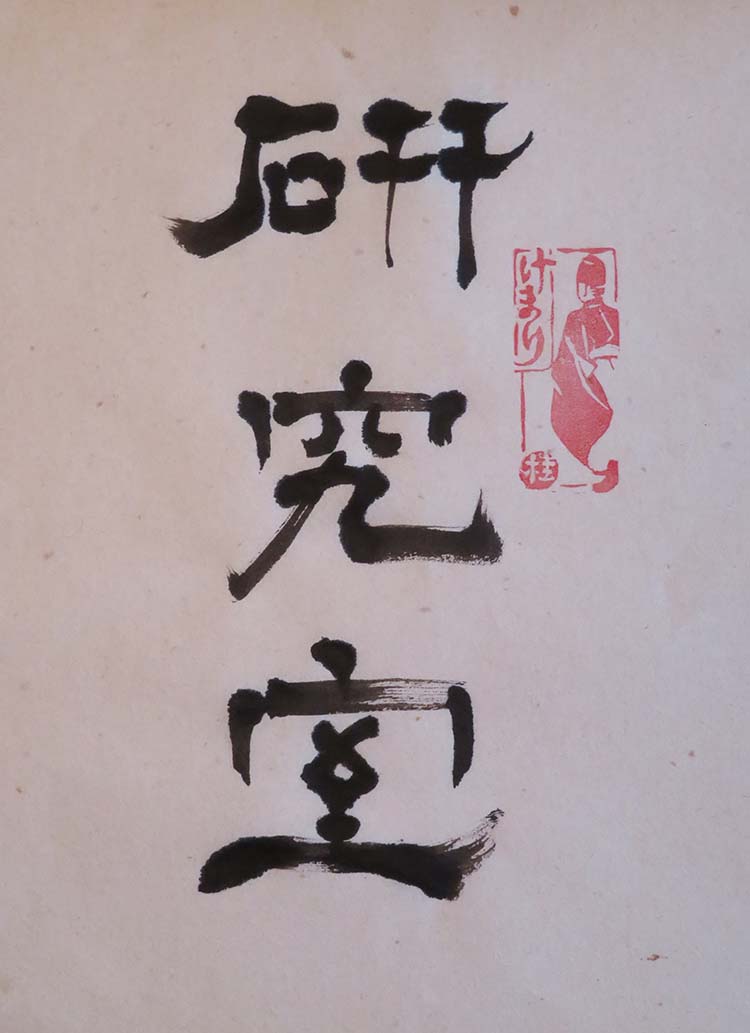 研究室
けまり
桂